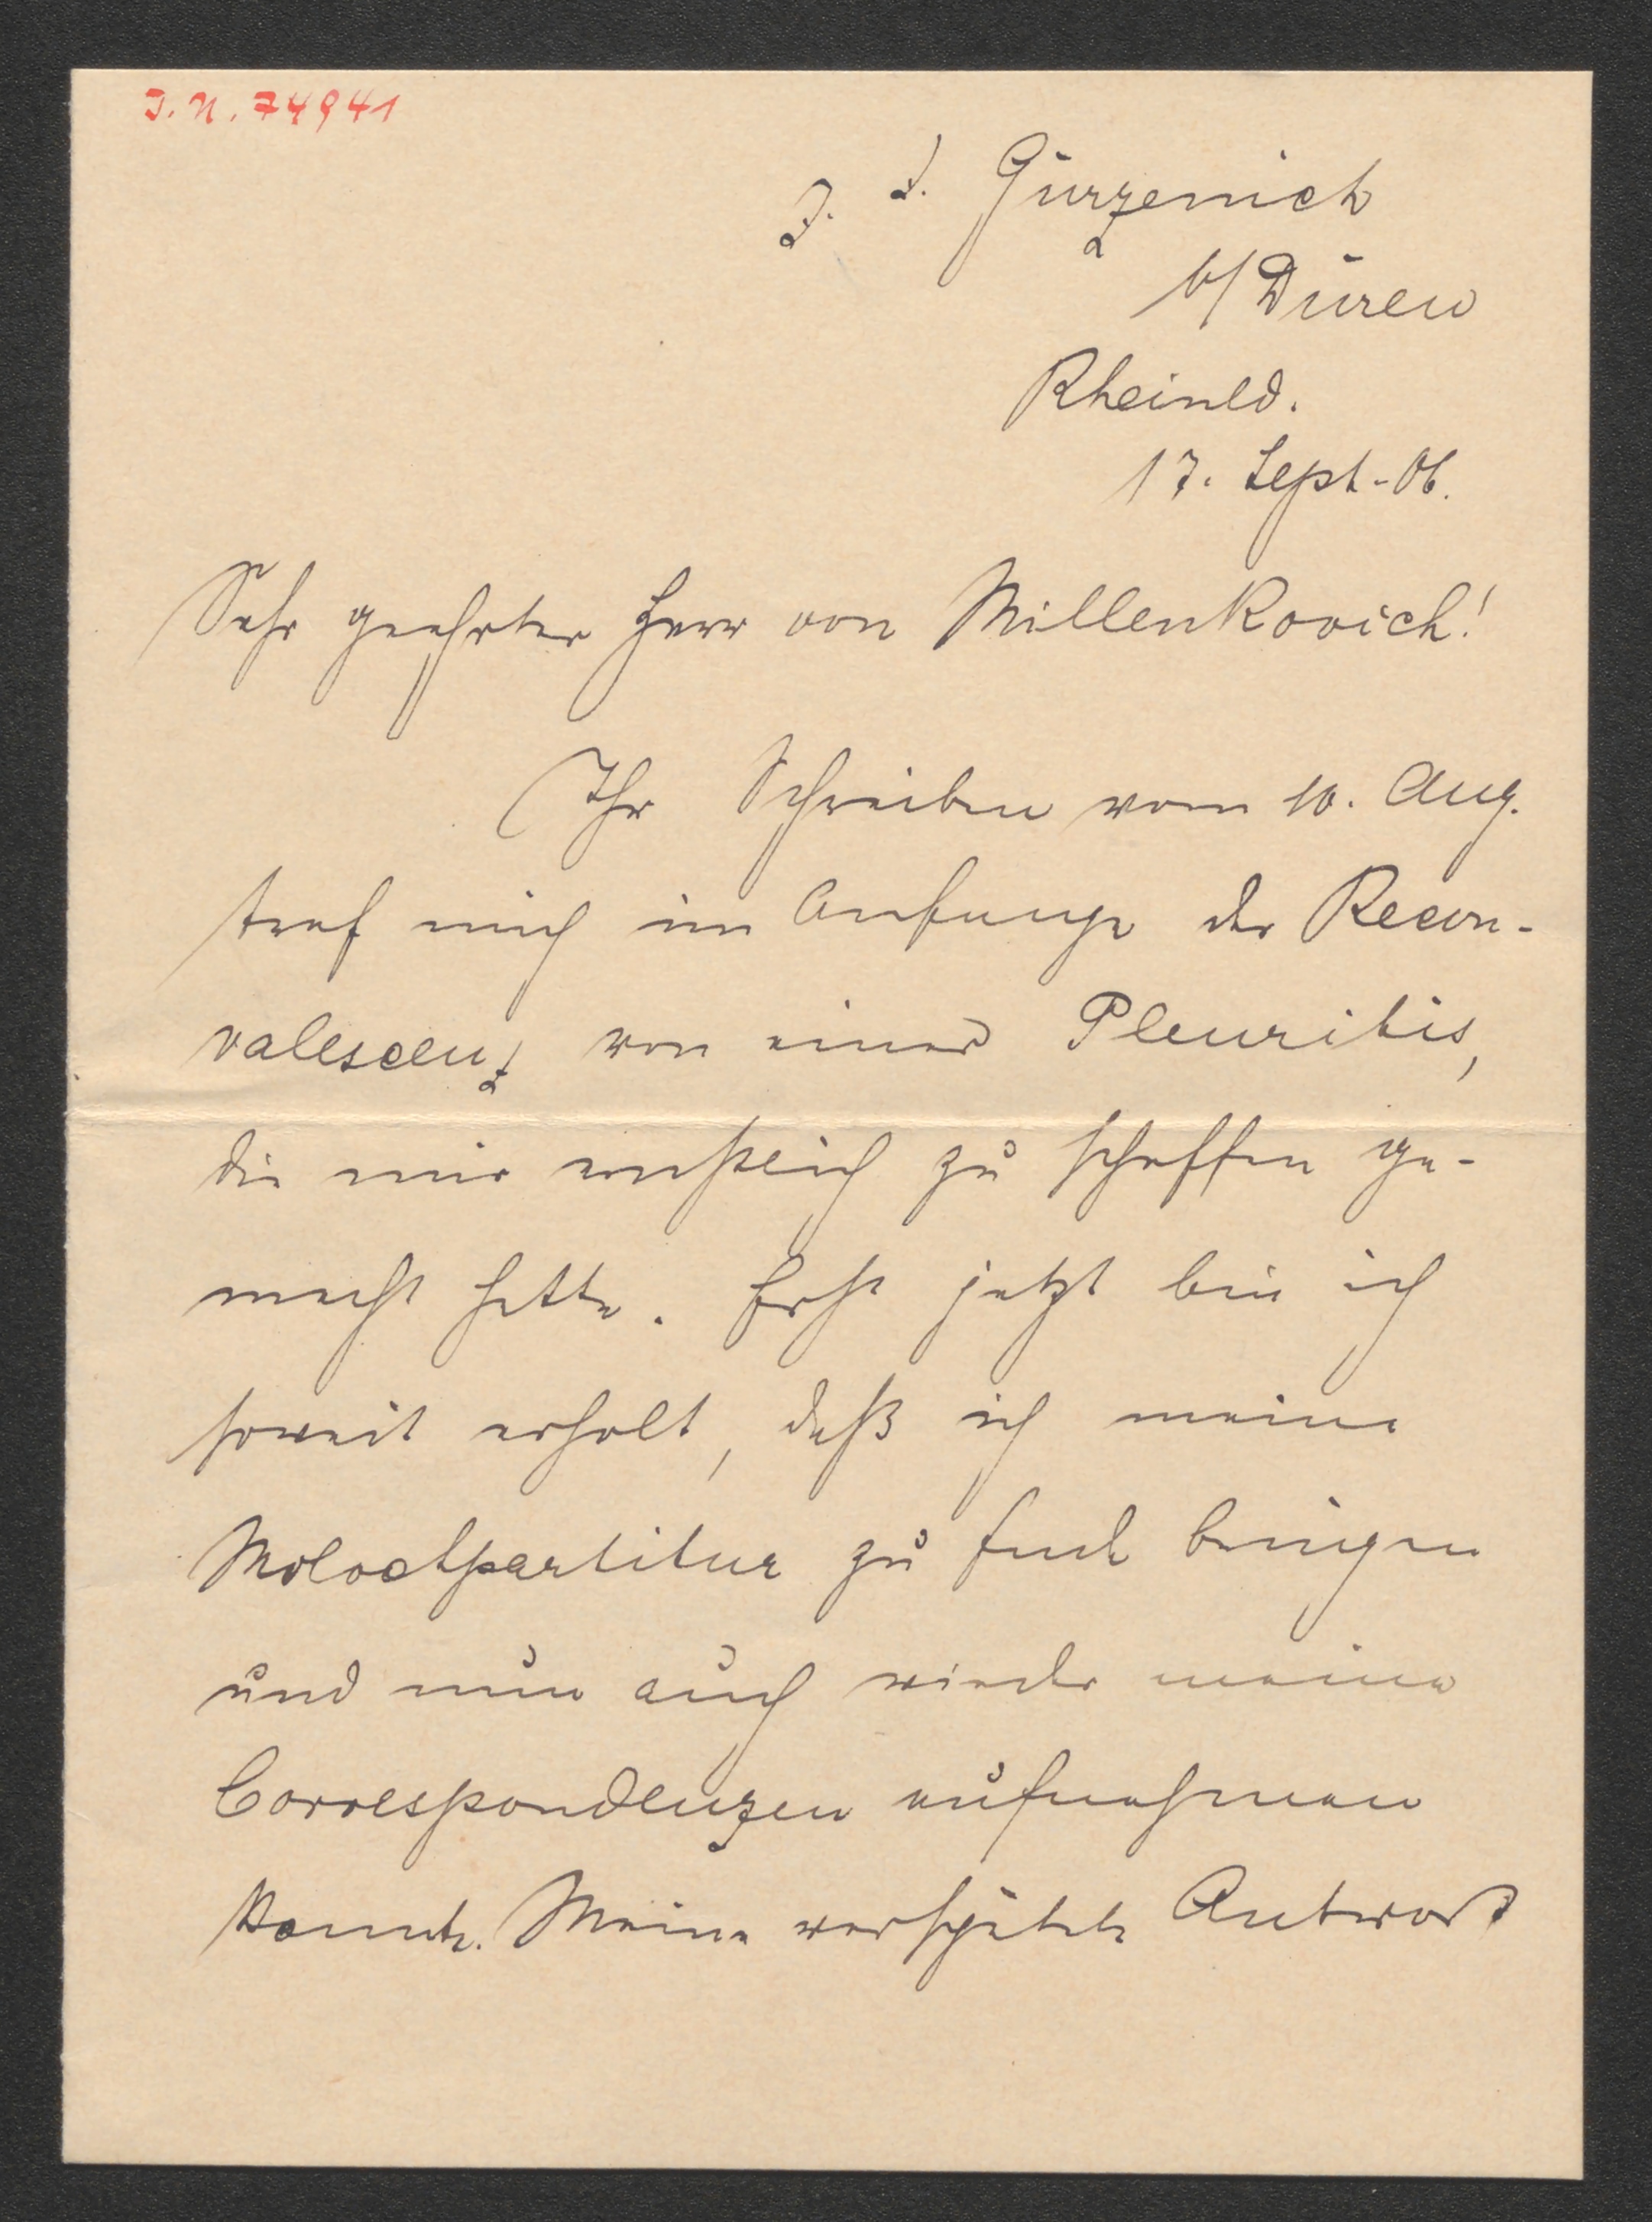 I. N. 74941
z. Z. Gürzenich
b/Düren
Rheinld.
17. Sept. 06.
Sehr geehrter Herr von Millenkovich!
Ihr Schreiben vom 10. Aug.
traf mich im Anfange der Recon-
valescenz von einer Pleuritis,
die mir ernstlich zu schaffen ge-
macht hatte. Erst jetzt bin ich
soweit erholt, daß ich meine
Molochpartitur zu Ende bringen
und nun auch wieder meine
Correspondenzen aufnehmen
konnte. Meine verspätete Antwort